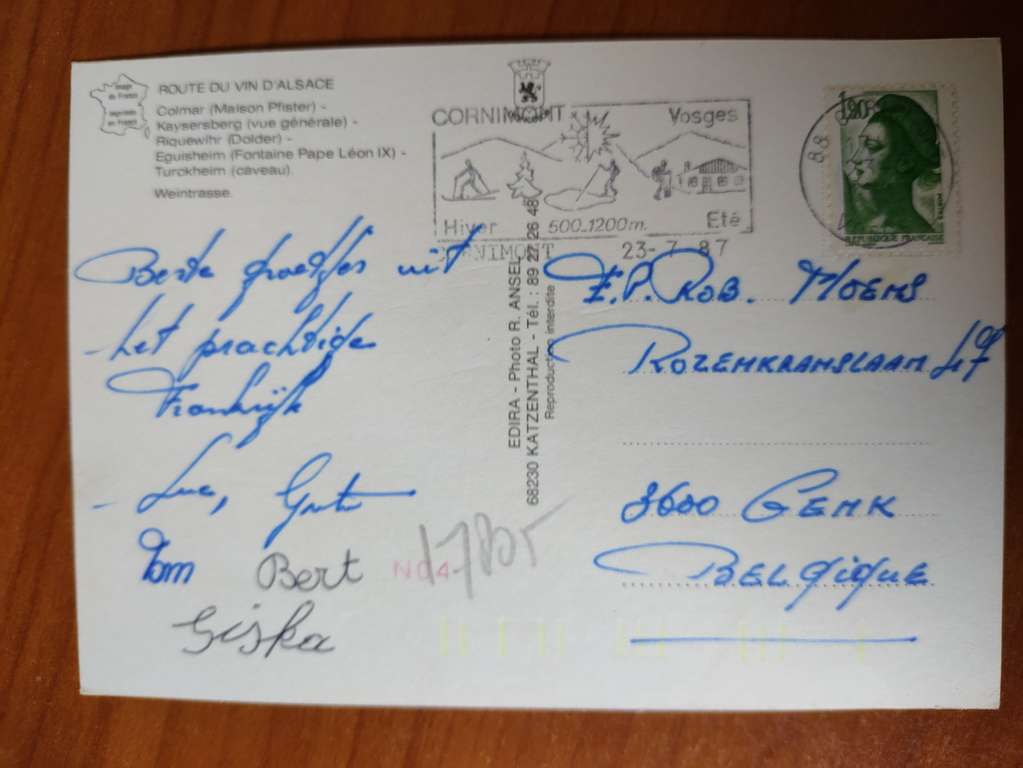 Image
de France
imprimée
en France
ROUTE DU VIN D'ALSACE
Colmar (Maison Pfister) -
Kaysersberg (vue générale) -
Riquewihr (Dolder) -
Eguisheim (Fontaine Pape Léon IX) -
Turckheim (caveau).
Weintrasse.
Beste groetjes uit
het prachtige
Frankrijk
Luc, Greta
Tom Bert
Giska
CORNIMONT Vosges
Hiver 500_1200m. Eté
CORNIMONT 23-7 87
88
1,90F
REPUBLIQUE FRANÇAISE
EDIRA - Photo R. ANSEL
68230 KATZENTHAL - Tél. : 89 27 26 48
Reproduction interdite
NO4
E.P. ROB. MOEMS
ROZENKRANSLAAN 47
3600 GENK
BELGIQUE